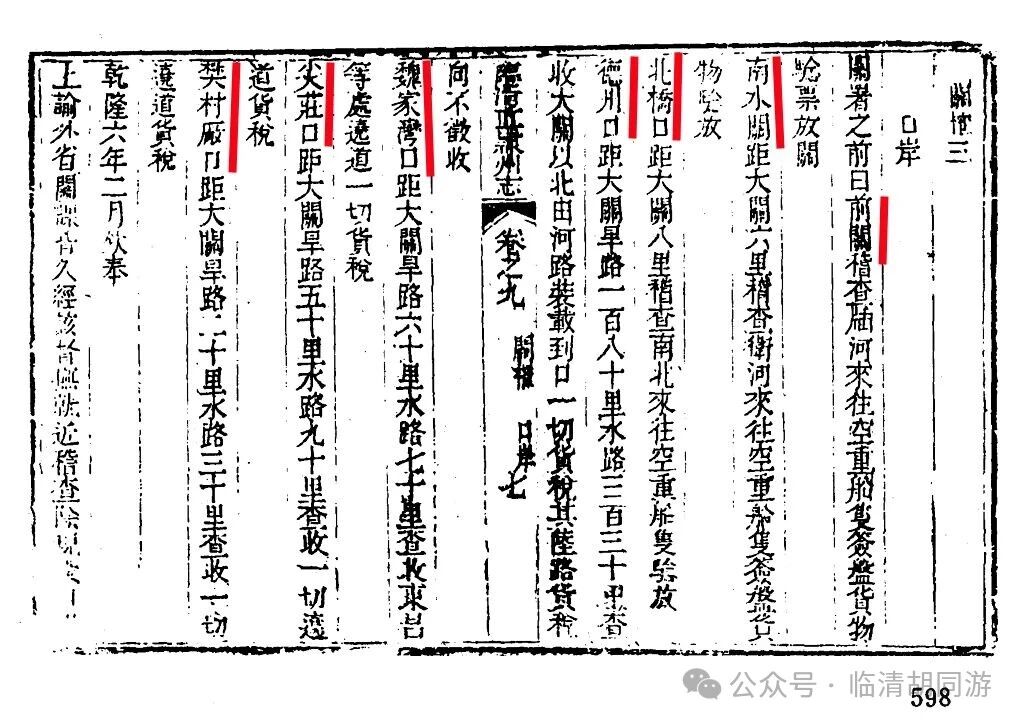 關榷三
口岸
關署之前曰前關稽查牐河來往空重船隻簽盤貨物
驗票放關
南水關距大關六里稽查衛河來往空重船隻簽盤貨
物驗放
北橋口距大關八里稽查南北來往空重船隻驗放
德州口距大關旱路一百八十里水路三百三十里查
收大關以北由河路裝載到口一切貨稅其陸路貨稅
臨清直隸州志 卷之九 關榷 口岸 七
向不徵收
魏家灣口距大關旱路六十里水路七十里查收東昌
等處遶道一切貨稅
尖莊口距大關旱路五十里水路九十里查收一切遶
道貨稅
樊村廠口距大關旱路二十里水路三十里查收一切
遶道貨稅
乾隆六年二月欽奉
上諭外省關課皆久經該督撫就近稽查
公众号·临清胡同游
598